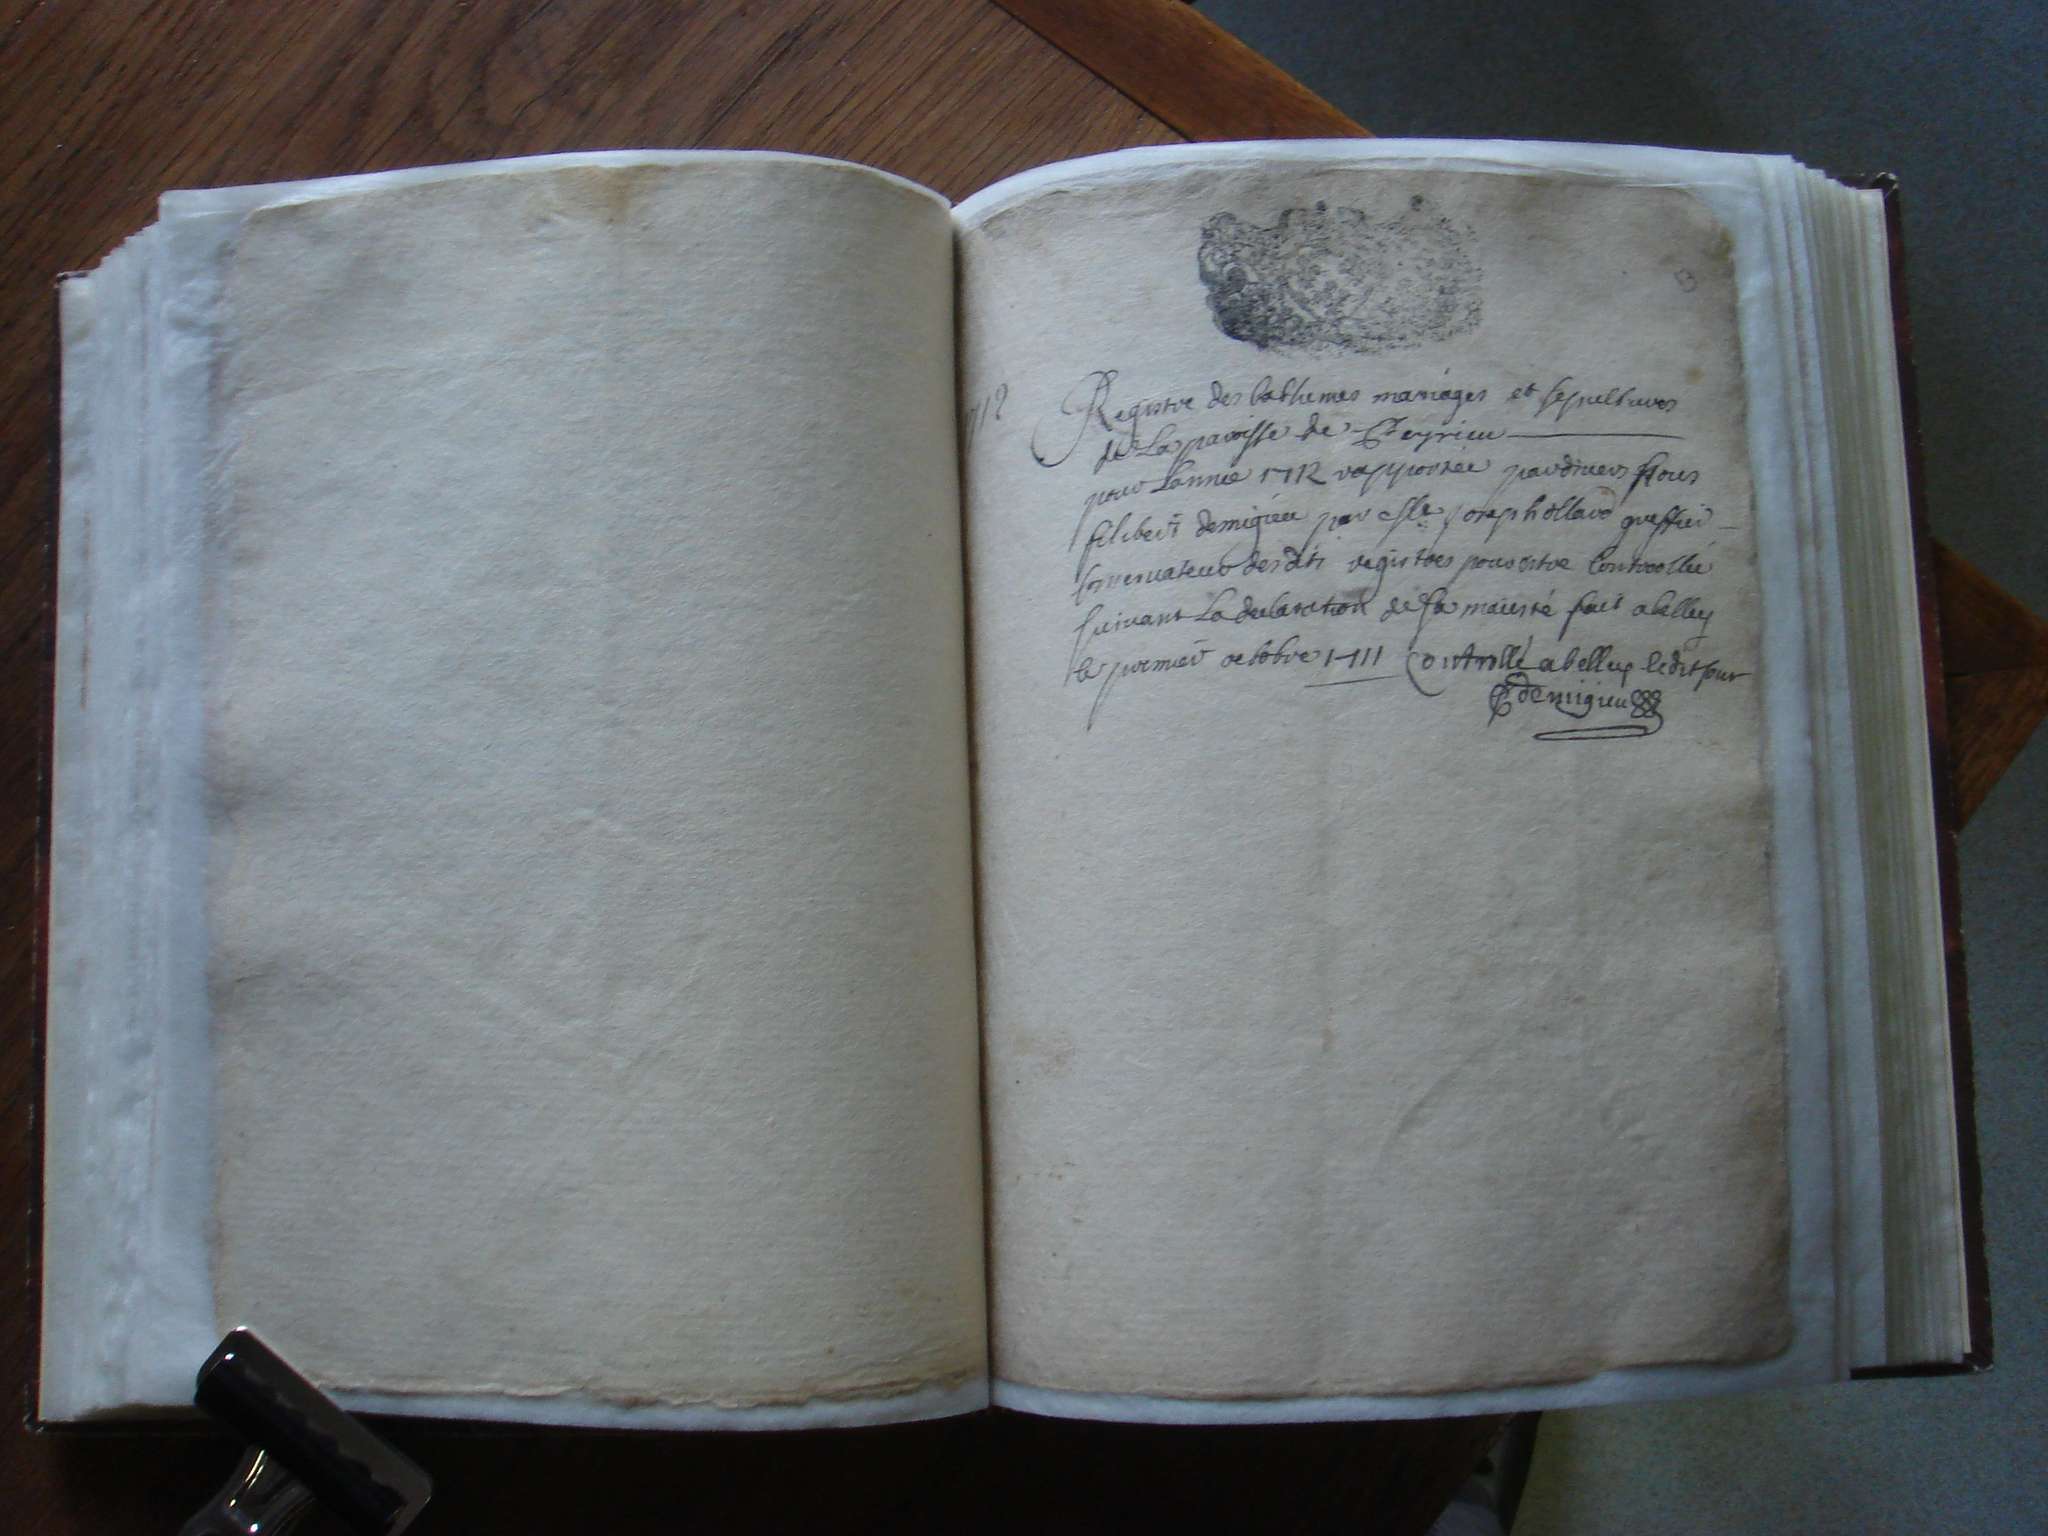 13
1712
Registre des bathemes mariages et sepultures
de La paroisse de Ceyrieu
pour Lannee 1712 rapportée pardevers Nous
filibert demigieu par Me Joseph ollard greffier
conservateur desdits registres pour estre Controllée
suivant La declaration de sa maiesté fait a belley
le premier octobre 1711 Controllé a belley ledit jour
demigieu